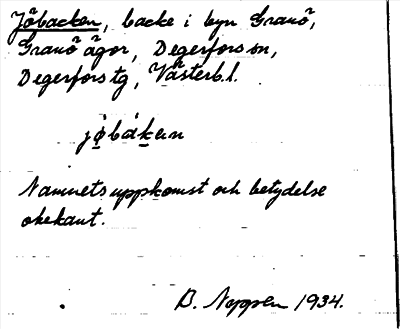 Jöbacken, backe i byn Granö,
Granö ägor, Degerfors sn,
Degerfors tg, Västerb.l.
jöbakan
Namnets uppkomst och betydelse
okekant.
B. Nygren 1934.